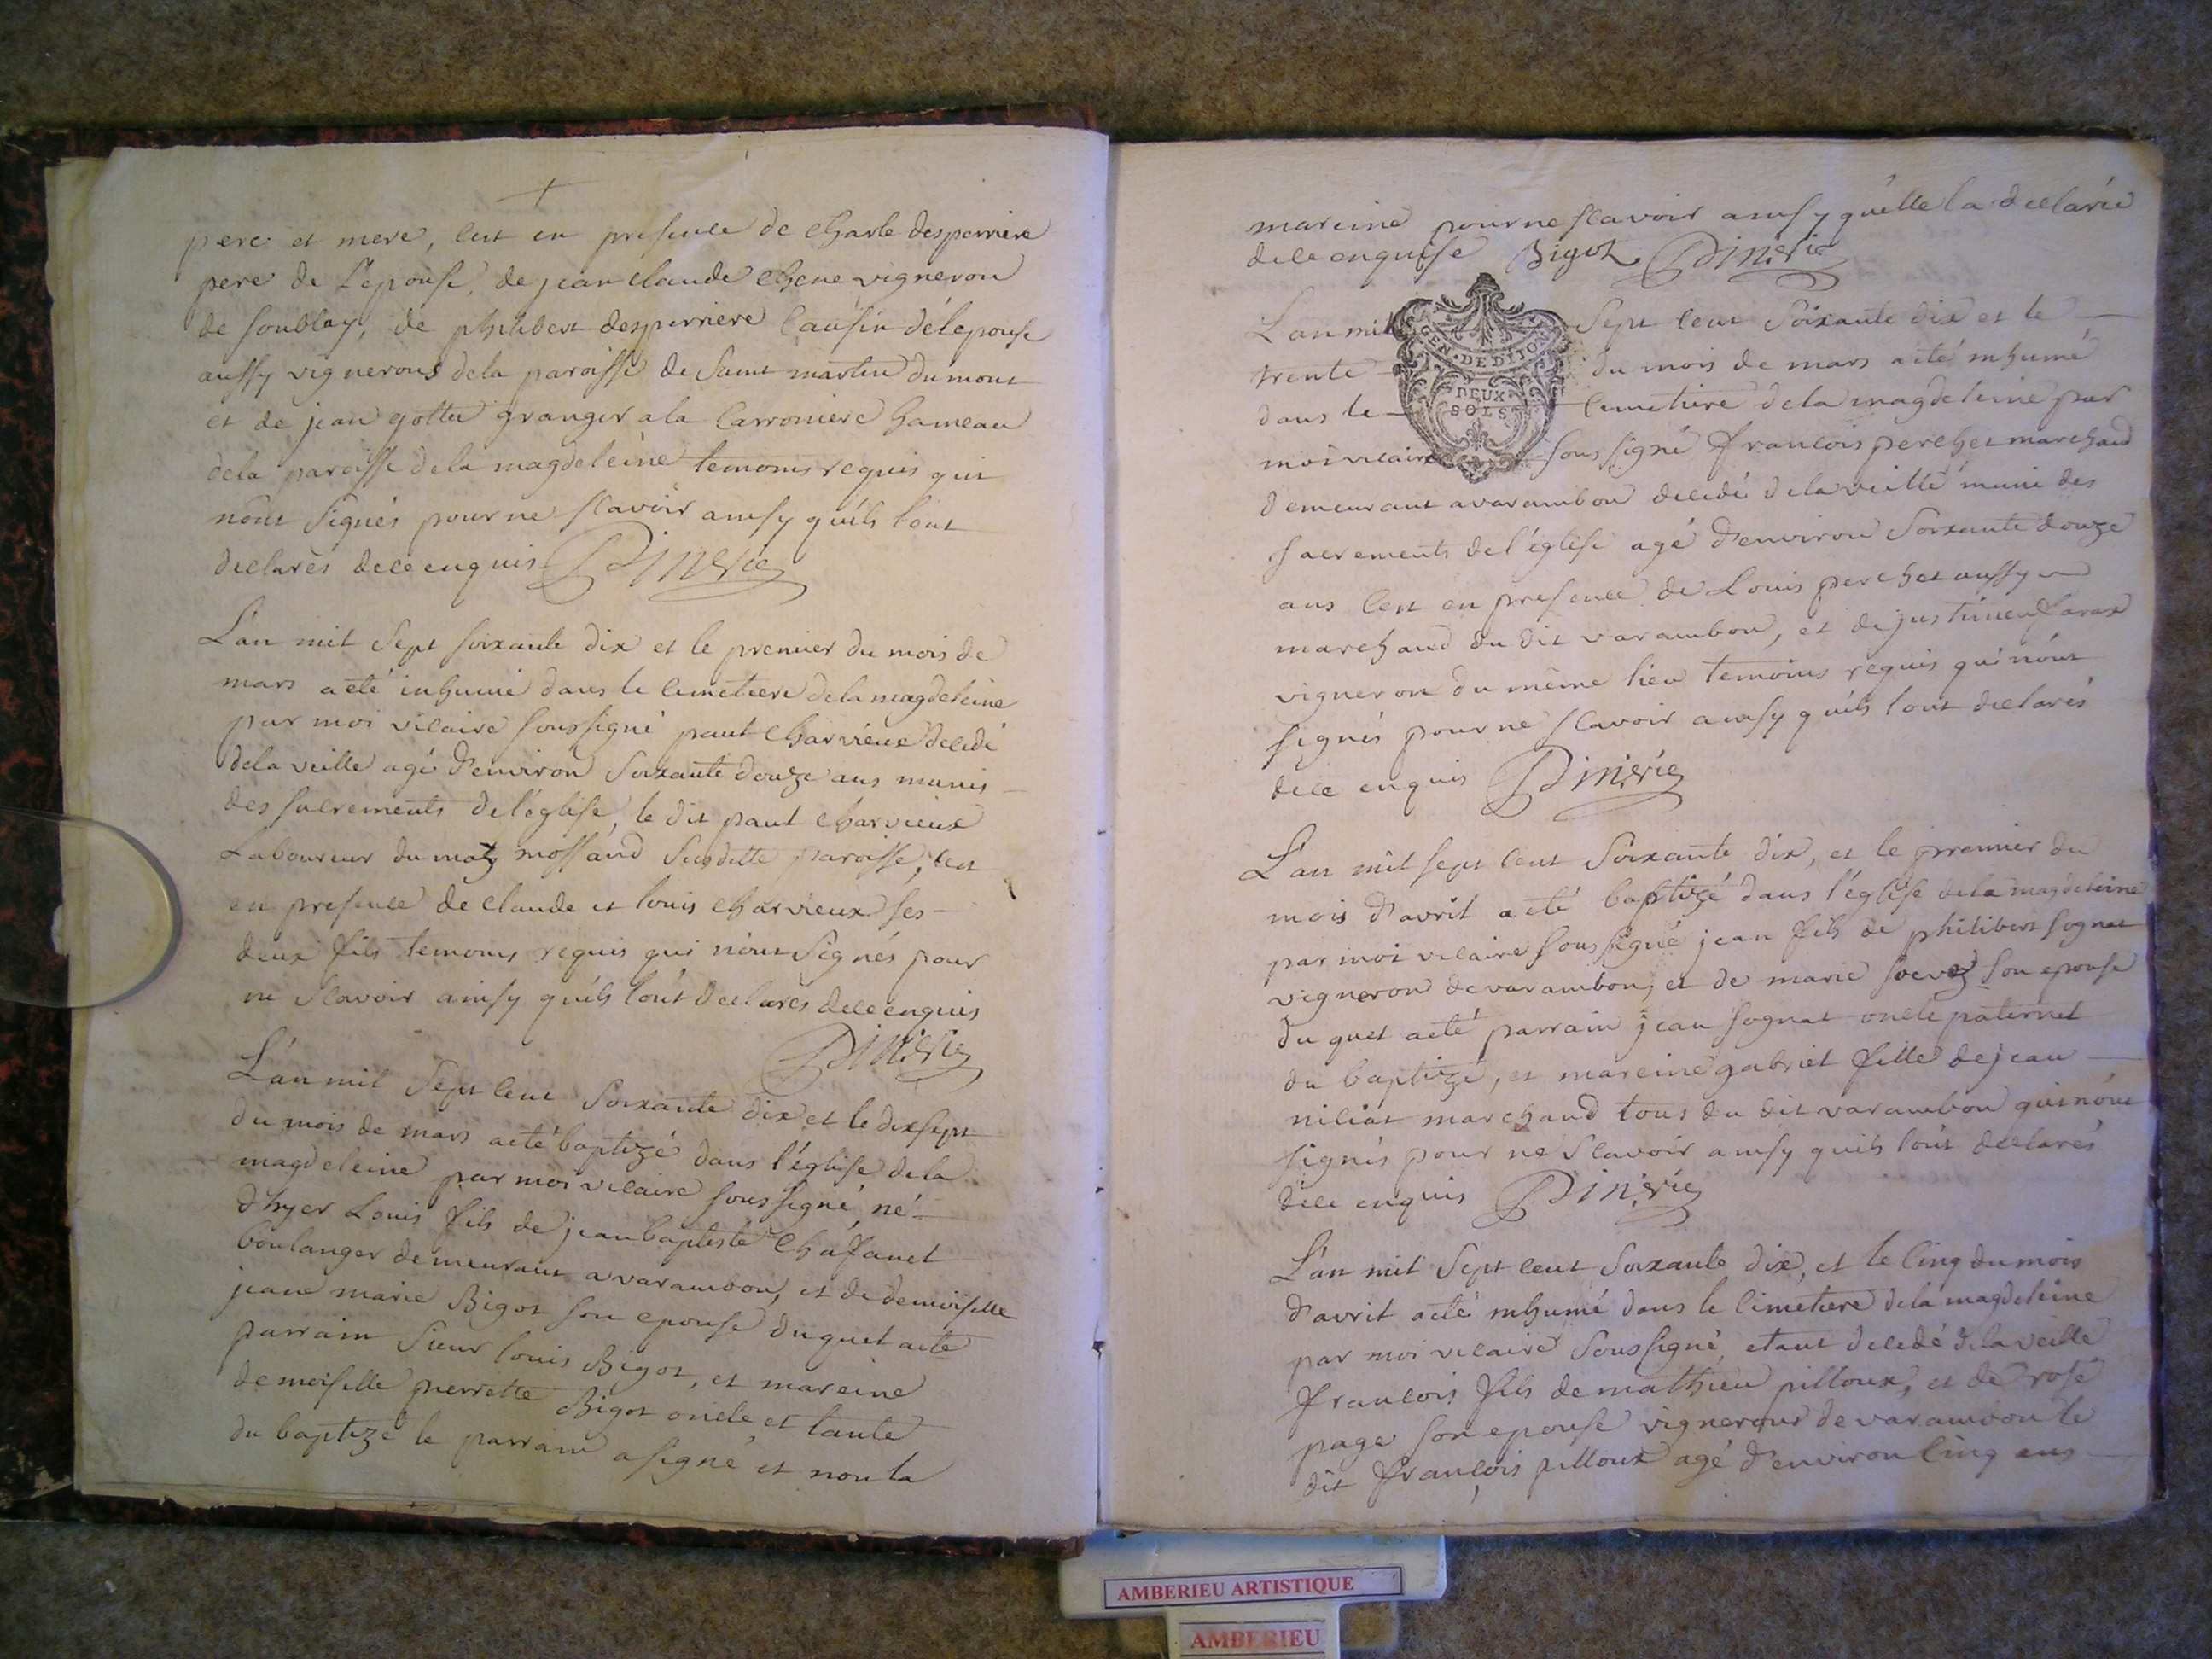 pere et mere, c'est en presence de charle desperriere
pere de L'epouse, de jean claude chene vigneron
de soublay, de philibert desperriere cousin de l'epouse
aussy vignerons de la paroisse de Saint martin du mont
et de jean gottet granger a la Carroniere hameau
de la paroisse de la magdeleine temoins requis qui
n'ont signés pour ne sçavoir ainsy qu'ils l'ont
declarés de ce enquis Dimerie
L'an mil Sept soixante dix et le premier du mois de
mars a été inhumé dans le cimetiere de la magdeleine
par moi vicaire soussigné paul charvieux decedé
de la veille agé d'environ Soixante douze ans munis
des sacrements de l'église, le dit paul charvieux
Laboureur du matz mossand Susditte paroisse, c'est
en presence de claude et louis charvieux ses
deux fils temoins requis qui n'ont Signés pour
ne Scavoir ainsy qu'ils l'ont declarés de ce enquis
Dimerie
L'an mil Sept cent Soixante dix et le dix sept
du mois de mars a été baptizé dans l'église de la
magdeleine par moi vicaire soussigné, né
d'hyer Louis fils de jean baptiste Chafanel
boulanger demeurant a varambon, et de demoiselle
jeane marie Bigot son epouse duquel a été
parrain Sieur louis Bigot, et mareine
demoiselle pierrette Bigot oncle et tante
du baptizé le parrain a signé et non la
mareine pour ne scavoir ainsy qu'elle la declarée
de ce enquise Bigot Dimerie
L'an mil Sept cent Soixante dix et le
GEN·DE DIJON
trente du mois de mars a été inhumé
DEUX
dans le cimetiere de la magdeleine par
SOLS
moi vicaire sous signé francois perchet marchand
demeurant a varambon decedé de la veille muni des
sacrements de l'église agé d'environ Soixante douze
ans c'est en presence de Louis perchet aussy
marchand du dit varambon, et de justinien
vigneron du même lieu temoins requis qui n'ont
signés pour ne scavoir ainsy qu'ils l'ont declarés
de ce enquis Dimerie
L'an mil sept cent Soixante dix, et le premier du
mois d'avril a été baptizé dans l'église de la magdeleine
par moi vicaire sous signé jean fils de philibert sognat
vigneron de varambon, et de marie son epouse
du quel a été parrain jean sognat oncle paternel
du baptizé, et mareine gabriel fille de jean
niliat marchand tous du dit varambon qui n'ont
signés pour ne Scavoir ainsy qu'ils l'ont declarés
de ce enquis Dimerie
L'an mil Sept cent Soixante dix, et le cinq du mois
d'avril a été inhumé dans le cimetiere de la magdeleine
par moi vicaire Soussigné, etant decedé de la veille
francois fils de mathieu pilloux, et de rose
page son epouse vignerons de varambon le
dit françois pilloux agé d'environ cinq ans
AMBERIEU ARTISTIQUE
AMBERIEU